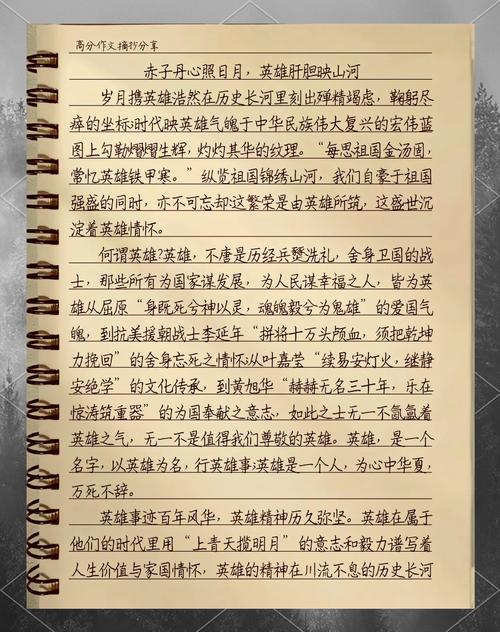 高分作文摘抄分享
赤子丹心照日月，英雄肝胆映山河
岁月携英雄浩然在历史长河里刻出殚精竭虑，鞠躬尽
瘁的坐标;时代映英雄气魄于中华民族伟大复兴的宏伟蓝
图上勾勒熠熠生辉，灼灼其华的纹理。“每思祖国金汤固，
常忆英雄铁甲寒。”纵览祖国锦绣山河，我们自豪于祖国
强盛的同时，亦不可忘却这繁荣是由英雄所筑，这盛世沉
淀着英雄情怀。
何谓英雄?英雄，不唐是历经兵燹洗礼，舍身卫国的战
士，那些所有为国家谋发展，为人民谋幸福之人，皆为英
雄从屈原“身既死兮神以灵，魂魄毅兮为鬼雄”的爱国气
魄，到抗美援朝战士李延年“拼将十万头颅血，须把乾坤
力挽回”的舍身忘死之情怀;从叶嘉莹“续易安灯火，继静
安绝学”的文化传承，到黄旭华“赫赫无名三十年，乐在
惊涛筑重器”的为国奉献之意志，如此之士无一不氤氲着
英雄之气，无一不是值得我们尊敬的英雄。英雄，是一个
名字，以英雄为名，行英雄事;英雄是一个人，为心中华夏，
万死不辞。
英雄事迹百年风华，英雄精神历久弥坚。英雄在属于
他们的时代里用“上青天揽明月”的意志和毅力谱写着
人生价值与家国情怀，英雄的精神在川流不息的历史长河